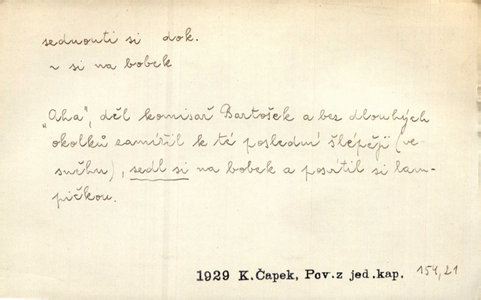 sednouti si dok.
~ si na bobek
"Aha", děl komisař Bartošek a bez dlouhých
okolků zamířil k té poslední šlépěji (ve
sněhu), sedl si na bobek a posvítil si lam-
pičkou.
1929 K.Čapek, Pov.z jed.kap. 154,21